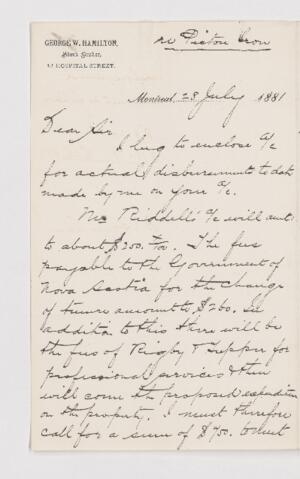 re Pictou Iron
GEORGE W. HAMILTON,
Stock Broker,
17 HOSPITAL STREET.
Montreal, 28 July 1881
Dear Sir
I beg to enclose a/c
for actual disbursements to date
made by me on your a/c.
Mr Riddell's a/c will amt.
to about $200. The fees
payable to the Government of
Nova Scotia for the change
of tenure amount to $260. In
addition to this there will be
the fees of Rigby & Tupper for
professional services & then
will come the proposed expenditure
on the property. I must therefore
call for a sum of to meet